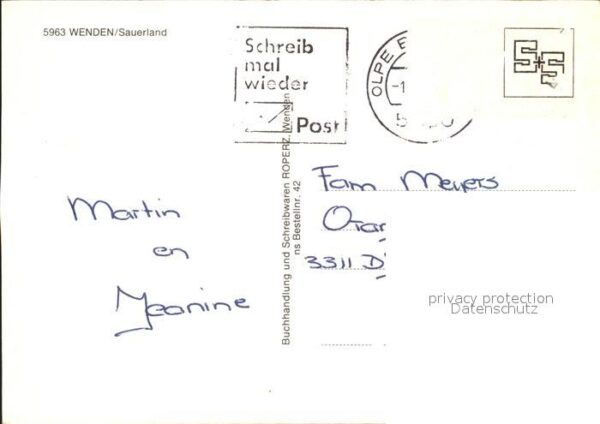 5963 WENDEN/Sauerland
Schreib
mal
wieder
Post
OLPE
Buchhandlung und Schreibwaren ROPERZ, Wenden
ns Bestellnr. 42
Martin
en
Jeanine
Fam Meyers
3311 D
privacy protection
Datenschutz